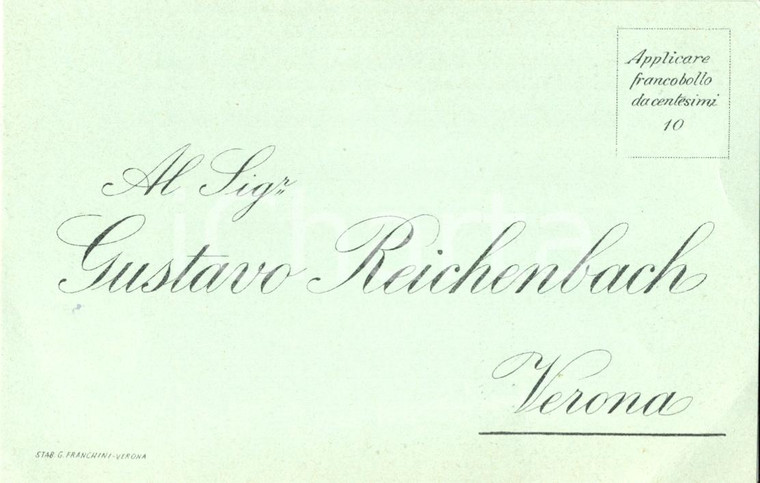 Applicare
francobollo
da centesimi
10
Al Sigr
Gustavo Reichenbach
Verona
STAB. G. FRANCHINI-VERONA
iCharta